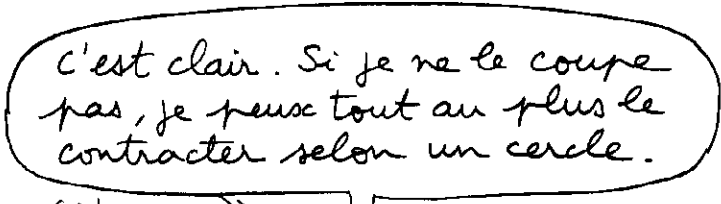 c'est clair. Si je ne le coupe
pas, je peux tout au plus le
contracter selon un cercle.